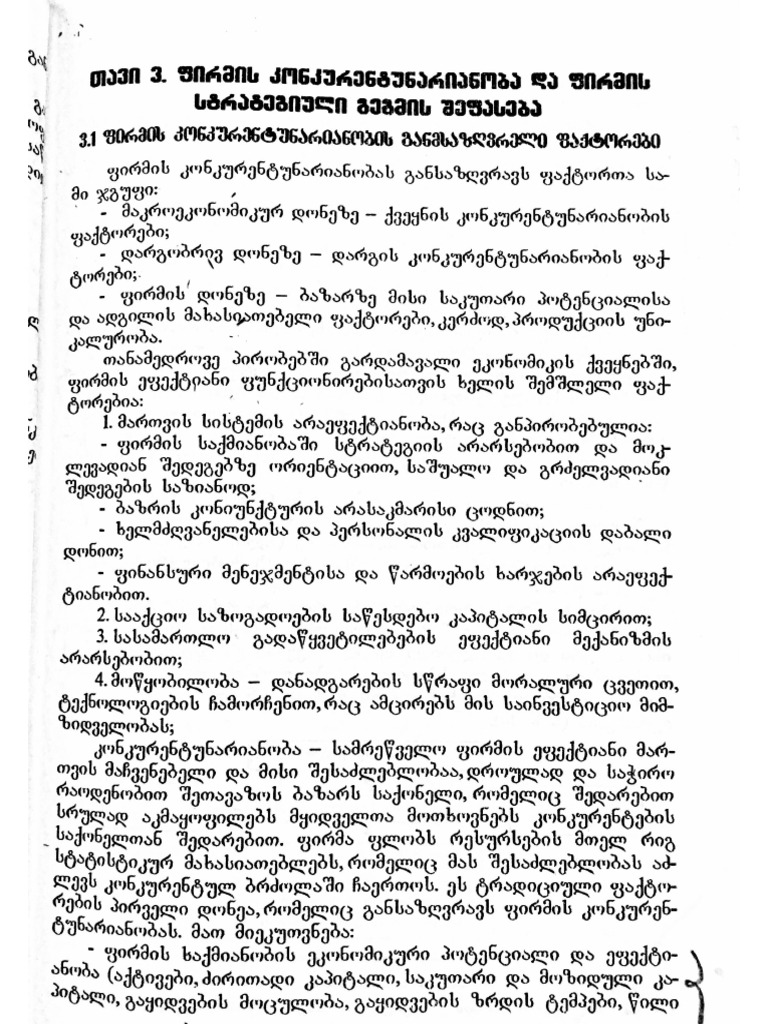 თავი 3. ფირმის კონკურენტუნარიანობა და ფირმის
სტრატეგიული გეგმის შეფასება
3.1 ფირმის კონკურენტუნარიანობის განმსაზღვრელი ფაქტორები
ფირმის კონკურენტუნარიანობას განსაზღვრავს ფაქტორთა სა-
მი ჯგუფი:
- მაკროეკონომიკურ დონეზე – ქვეყნის კონკურენტუნარიანობის
ფაქტორები;
- დარგობრივ დონეზე – დარგის კონკურენტუნარიანობის ფაქ-
ტორები;
- ფირმის დონეზე – ბაზარზე მისი საკუთარი პოტენციალისა
და ადგილის მახასიათებელი ფაქტორები, კერძოდ, პროდუქციის უნი-
კალურობა.
თანამედროვე პირობებში გარდამავალი ეკონომიკის ქვეყნებში,
ფირმის ეფექტიანი ფუნქციონირებისათვის ხელის შემშლელი ფაქ-
ტორებია:
1. მართვის სისტემის არაეფექტიანობა, რაც განპირობებულია:
- ფირმის საქმიანობაში სტრატეგიის არარსებობით და მოკ-
ლევადიან შედეგებზე ორიენტაციით, საშუალო და გრძელვადიანი
შედეგების საზიანოდ;
- ბაზრის კონიუნქტურის არასაკმარისი ცოდნით;
- ხელმძღვანელებისა და პერსონალის კვალიფიკაციის დაბალი
დონით;
- ფინანსური მენეჯმენტისა და წარმოების ხარჯების არაეფექ-
ტიანობით.
2. სააქციო საზოგადოების საწესდებო კაპიტალის სიმცირით;
3. სასამართლო გადაწყვეტილებების ეფექტიანი მექანიზმის
არარსებობით;
4. მოწყობილობა – დანადგარების სწრაფი მორალური ცვეთით,
ტექნოლოგიების ჩამორჩენით, რაც ამცირებს მის საინვესტიციო მიმ-
ზიდველობას;
კონკურენტუნარიანობა – სამრეწველო ფირმის ეფექტიანი მარ-
თვის მაჩვენებელი და მისი შესაძლებლობაა, დროულად და საჭირო
რაოდენობით შეთავაზოს ბაზარს საქონელი, რომელიც შედარებით
სრულად აკმაყოფილებს მყიდველთა მოთხოვნებს კონკურენტების
საქონელთან შედარებით. ფირმა ფლობს რესურსების მთელ რიგ
სტატისტიკურ მახასიათებლებს, რომელიც მას შესაძლებლობას აძ-
ლევს კონკურენტულ ბრძოლაში ჩაერთოს. ეს ტრადიციული ფაქტო-
რების პირველი დონეა, რომელიც განსაზღვრავს ფირმის კონკურენ-
ტუნარიანობას. მათ მიეკუთვნება:
- ფირმის საქმიანობის ეკონომიკური პოტენციალი და ეფექტი-
ანობა (აქტივები, ძირითადი კაპიტალი, საკუთარი და მოზიდული კა-
პიტალი, გაყიდვების მოცულობა, გაყიდვების ზრდის ტემპები, წილი